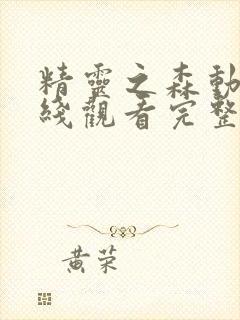 精靈之森動
綫觀看完整
黃荣